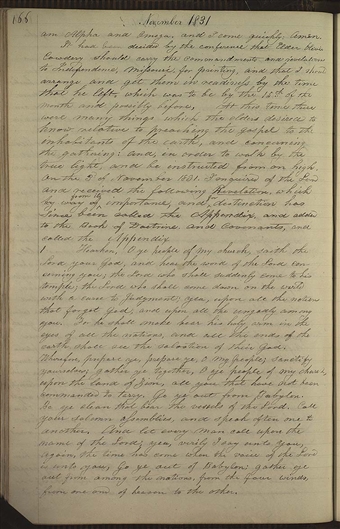 166 November 1831
am Alpha and Omega, and I come quickly, Amen.
It had been decided by the conference that Elder Oliver
Cowdery should carry the commandments and revelations
to Independence, Missouri, for printing, and that I should
arrange and get them in readiness by the time
that he left, which was to be by the 15th of the
month and possibly before. At this time there
were many things which the elders desired to
know relative to preaching the Gospel to the
inhabitants of the earth, and concerning
the gathering: and, in order to walk by the
true light, and be instructed from on high,
on the 3d of November 1831. I enquired of the Lord
and received the following Revelation, which
from its
by way of importance, and distinction has
since been called the Appendix, and added
to the Book of Doctrine and Covenants, and
called the Appendix
1 Hearken, O ye people of my church, saith the
Lord your God, and hear the word of the Lord con
cerning you; the Lord who shall suddenly come to his
temple; the Lord who shall come down on the world
with a curse to Judgment; yea, upon all the nations
that forget God, and upon all the ungodly among
you. For he shall make bare his holy arm in the
eyes of all the nations, and all the ends of the
earth shall see the salvation of their God.
Wherefore, prepare ye, prepare ye, O my people; sanctify
yourselves; gather ye together, O ye people of my church,
upon the land of Zion, all you that have not been
commanded to tarry. Go ye out from Babylon.
Be ye clean that bear the vessels of the Lord. Call
your solemn assemblies, and speak often one to
another. And let every man call upon the
name of the Lord; yea, verily I say unto you,
again, the time has come when the voice of the Lord
is unto you, Go ye out of Babylon; gather ye
out from among the nations, from the four winds,
from one end of heaven to the other.